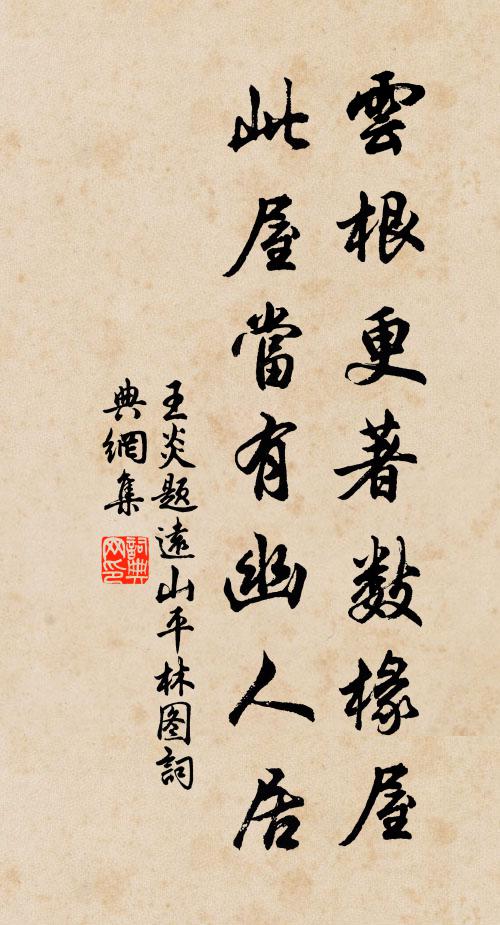 雲根更著數椽屋
此屋當有幽人居
王炎题遠山平林图詞
典網集
詞典
网印